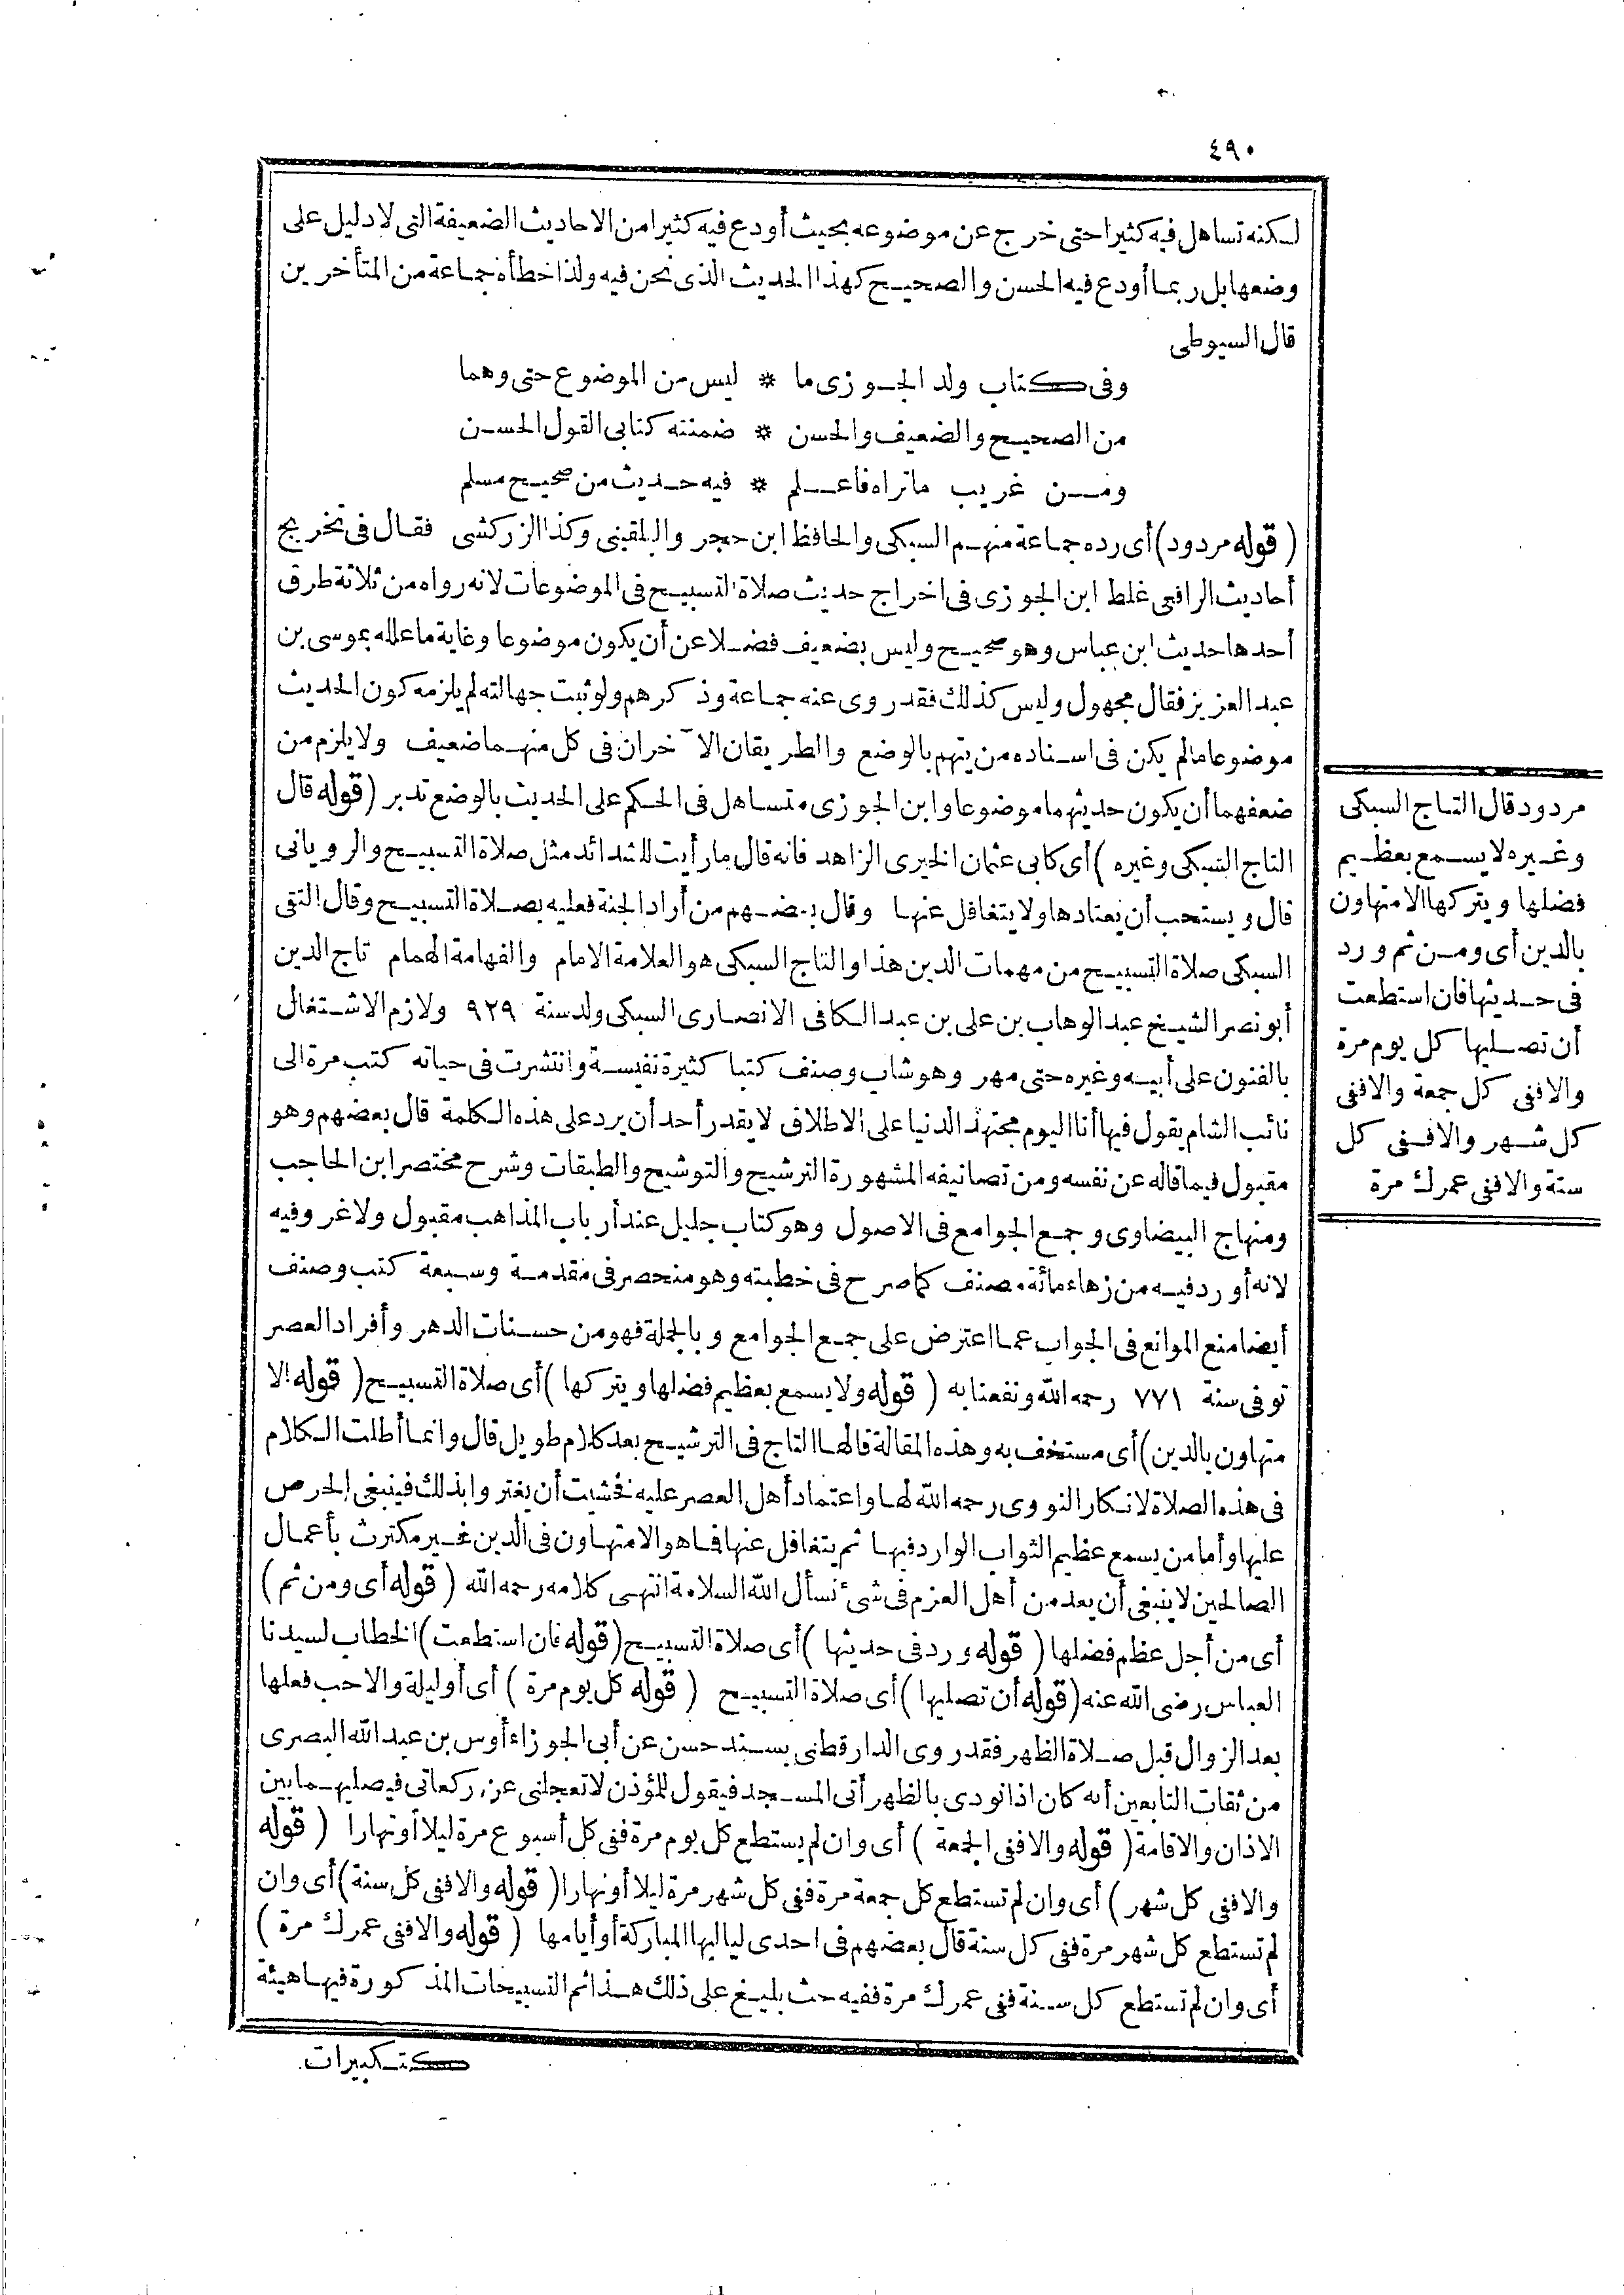 ٤٩٠
لكنه تساهل فيه كثيرا حتى خرج عن موضوعه بحيث أودع فيه كثيرا من الاحاديث الضعيفة التى لا دليل على
وضعها بل ربما أودع فيه الحسن والصحيح كهذا الحديث الذى نحن فيه ولذا خطأه جماعة من المتأخرين
قال السيوطى
وفى كتاب ولد الجوزى ما * ليس من الموضوع حتى وهما
من الصحيح والضعيف والحسن * ضمنته كتابى القول الحسن
ومن غريب ما تراه فاعلم * فيه حديث من صحيح مسلم
(قوله مردود) أى رده جماعة منهم السبكى والحافظ ابن حجر والبلقينى وكذا الزركشى فقال فى تخريج
أحاديث الرافعى غلط ابن الجوزى فى اخراج حديث صلاة التسبيح فى الموضوعات لانه رواه من ثلاثة طرق
أحدها حديث ابن عباس وهو صحيح وليس بضعيف فضلا عن أن يكون موضوعا وغاية ما علله بموسى بن
عبد العزيز فقال مجهول وليس كذلك فقد روى عنه جماعة وذكرهم ولو ثبت جهالته لم يلزمه كون الحديث
موضوعا مالم يكن فى اسناده من يتهم بالوضع والطريقان الآخران فى كل منهما ضعيف ولا يلزم من
ضعفهما أن يكون حديثهما موضوعا وابن الجوزى متساهل فى الحكم على الحديث بالوضع تدبر (قوله قال
التاج السبكى وغيره) أى كابى عثمان الخيرى الزاهد فانه قال ما رأيت للشدائد مثل صلاة التسبيح والرويانى
قال ويستحب أن يعتادها ولا يتغافل عنها وقال بعضهم من أراد الجنة فعليه بصلاة التسبيح وقال التقى
السبكى صلاة التسبيح من مهمات الدين هذا والتاج السبكى هو العلامة الامام والفهامة الهمام تاج الدين
أبو نصر الشيخ عبد الوهاب بن على بن عبد الكافى الانصارى السبكى ولد سنة ٩٢٩ ولازم الاشتغال
بالفنون على أبيه وغيره حتى مهر وهو شاب وصنف كتبا كثيرة نفيسة وانتشرت فى حياته كتب مرة الى
نائب الشام يقول فيها أنا اليوم مجتهد الدنيا على الاطلاق لا يقدر أحد أن يرد على هذه الكلمة قال بعضهم وهو
مقبول فيما قاله عن نفسه ومن تصانيفه المشهورة الترشيح والتوشيح والطبقات وشرح مختصر ابن الحاجب
ومنهاج البيضاوى وجمع الجوامع فى الاصول وهو كتاب جليل عند أرباب المذاهب مقبول ولا غرو فيه
لانه أورد فيه من زهاء مائة مصنف كما صرح فى خطبته وهو منحصر فى مقدمة وسبعة كتب وصنف
أيضا منع الموانع فى الجواب عما اعترض على جمع الجوامع وبالجملة فهو من حسنات الدهر وأفراد العصر
توفى سنة ٧٧١ رحمه الله ونفعنا به (قوله ولا يسمع بعظيم فضلها ويتركها) أى صلاة التسبيح (قوله الا
متهاون بالدين) أى مستخف به وهذه المقالة قالها التاج فى الترشيح بعد كلام طويل قال وانما أطلت الكلام
فى هذه الصلاة لانكار النووى رحمه الله لها واعتماد أهل العصر عليه فخشيت أن يغتروا بذلك فينبغى الحرص
عليها وأما من يسمع عظيم الثواب الوارد فيها ثم يتغافل عنها فما هو الا متهاون فى الدين غير مكترث بأعمال
الصالحين لا ينبغى أن يعد من أهل العزم فى شئ نسأل الله السلامة انتهى كلامه رحمه الله (قوله أى ومن ثم)
أى من أجل عظم فضلها (قوله ورد فى حديثها) أى صلاة التسبيح (قوله فان استطعت) الخطاب لسيدنا
العباس رضى الله عنه (قوله أن تصليها) أى صلاة التسبيح (قوله كل يوم مرة) أى أو ليلة والاحب فعلها
بعد الزوال قبل صلاة الظهر فقد روى الدارقطنى بسند حسن عن أبى الجوزاء أوس بن عبد الله البصرى
من ثقات التابعين أنه كان اذا نودى بالظهر أتى المسجد فيقول للمؤذن لا تعجلنى عن ركعاتى فيصليهما بين
الاذان والاقامة (قوله والا ففى الجمعة) أى وان لم يستطع كل يوم مرة ففى كل أسبوع مرة ليلا أو نهارا (قوله
والا ففى كل شهر) أى وان لم تستطع كل جمعة مرة ففى كل شهر مرة ليلا أو نهارا (قوله والا ففى كل سنة) أى وان
لم تستطع كل شهر مرة ففى كل سنة قال بعضهم فى احدى لياليها المباركة أو أيامها (قوله والا ففى عمرك مرة)
أى وان لم تستطع كل سنة ففى عمرك مرة ففيه حث بليغ على ذلك هذا ثم التسبيحات المذكورة فيها هيئة
كتكبيرات
مردود قال التاج السبكى
وغيره لا يسمع بعظيم
فضلها ويتركها الا متهاون
بالدين أى ومن ثم ورد
فى حديثها فان استطعت
أن تصليها كل يوم مرة
والا ففى كل جمعة والا ففى
كل شهر والا ففى كل
سنة والا ففى عمرك مرة